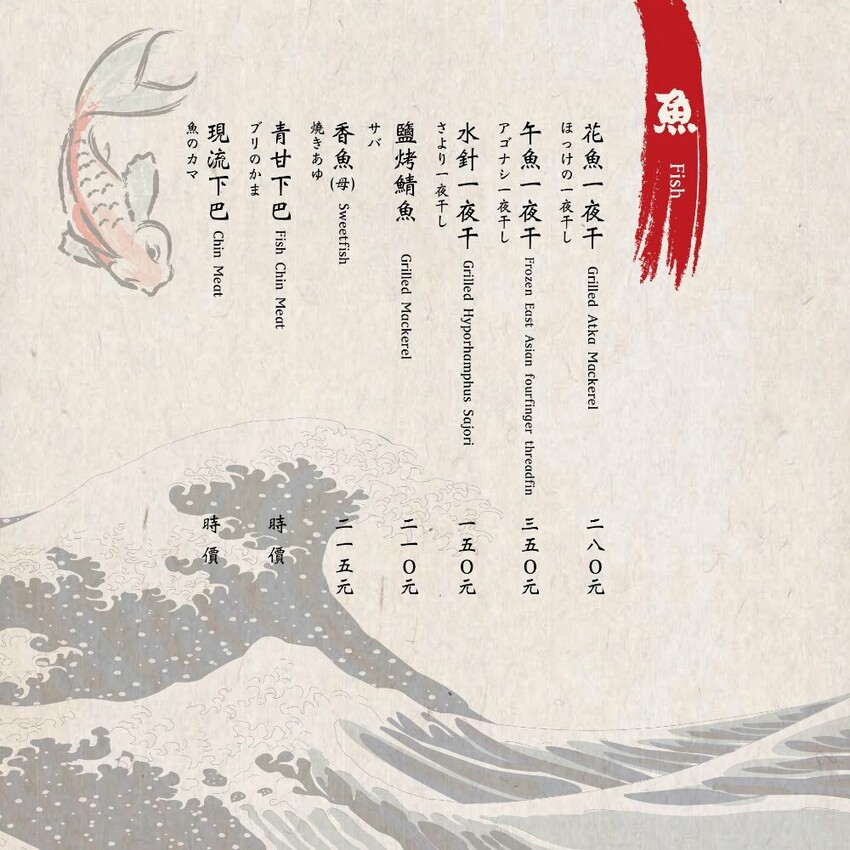 魚 Fish
花魚一夜干 Grilled Atka Mackerel 二八〇元
ほっけの一夜干し
午魚一夜干 Frozen East Asian fourfinger threadfin 三五〇元
アゴナシ一夜干し
水針一夜干 Grilled Hyporhamphus Sajori 一五〇元
さより一夜干し
鹽烤鯖魚 Grilled Mackerel 二一〇元
サバ
香魚(母) Sweetfish 二一五元
焼きあゆ
青甘下巴 Fish Chin Meat 時價
ブリのかま
現流下巴 Chin Meat 時價
魚のカマ